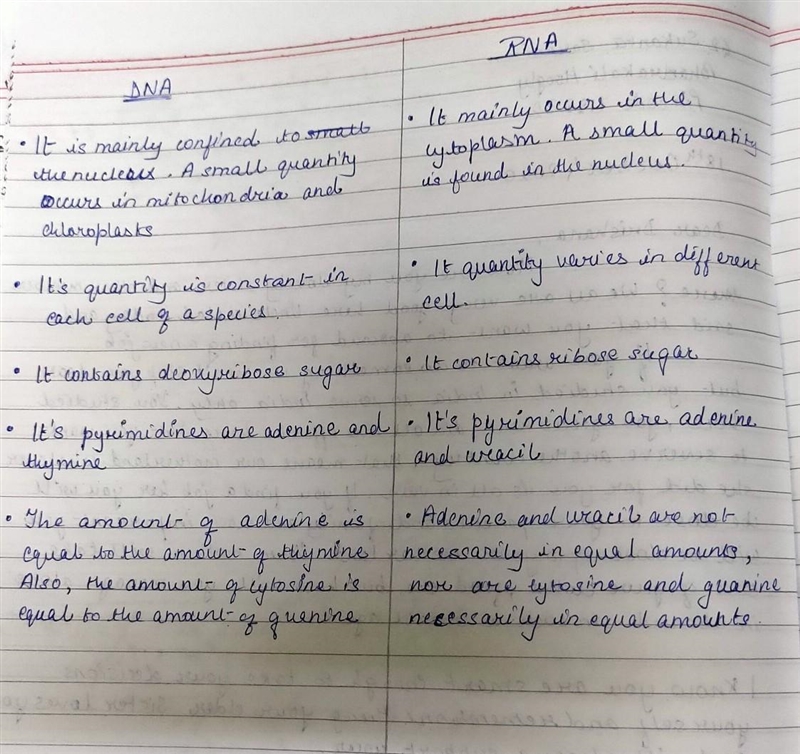 DNA
• It is mainly confined to small
the nucleus. A small quantity
occurs in mitochondria and
chloroplasts
• It's quantity is constant in
each cell of a species.
• It contains deoxyribose sugar
• It's pyrimidines are adenine and
thymine
• The amount of adenine is
equal to the amount of thymine
Also, the amount of cytosine is
equal to the amount of guenine
RNA
• It mainly occurs in the
cytoplasm. A small quantity
is found in the nucleus.
• It quantity varies in different
cell.
• It contains ribose sugar
• It's pyrimidines are adenine
and uracil
• Adenine and uracil are not
necessarily in equal amounts,
nor are cytosine and guanine
necessarily in equal amounts.